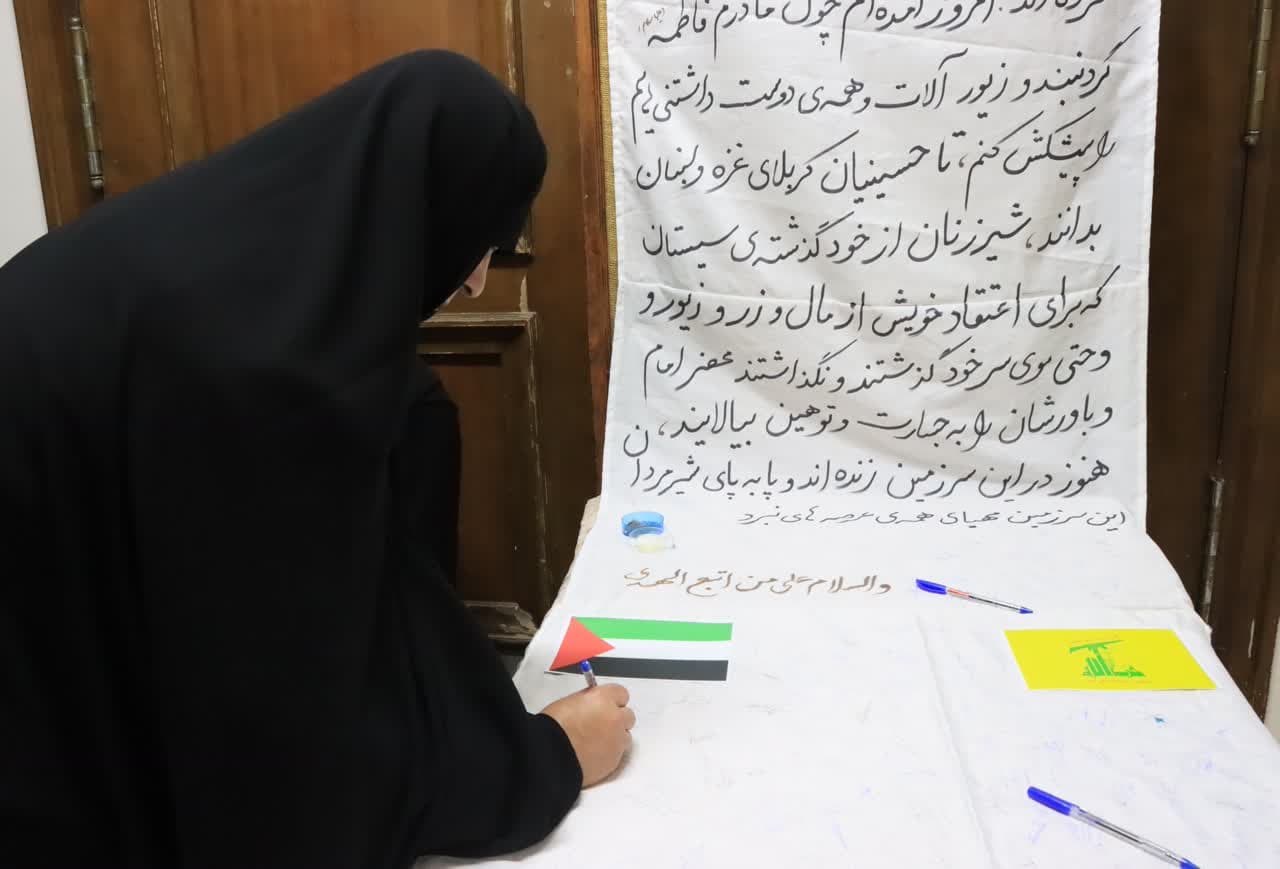 کرده اند. امروز آمده ام چون مادرم فاطمه
گردنبند و زیور آلات و همه‌ی دوست داشتنی هایم
را پیشکش کنم، تا حسینیان کربلای غزه و لبنان
بدانند، شیرزنان از خود گذشته‌ی سیستان
که برای اعتقاد خویش از مال و زر و زیور و
وحتی موی سر خود گذشتند و نگذاشتند محضر امام
و باورشان را به جسارت و توهین بیالایند،
هنوز در این سرزمین زنده اند و پا به پای شیرمردان
این سرزمین مهیای همه‌ی عرصه های نبرد
والسلام علی من اتبع الهدی
حزب الله